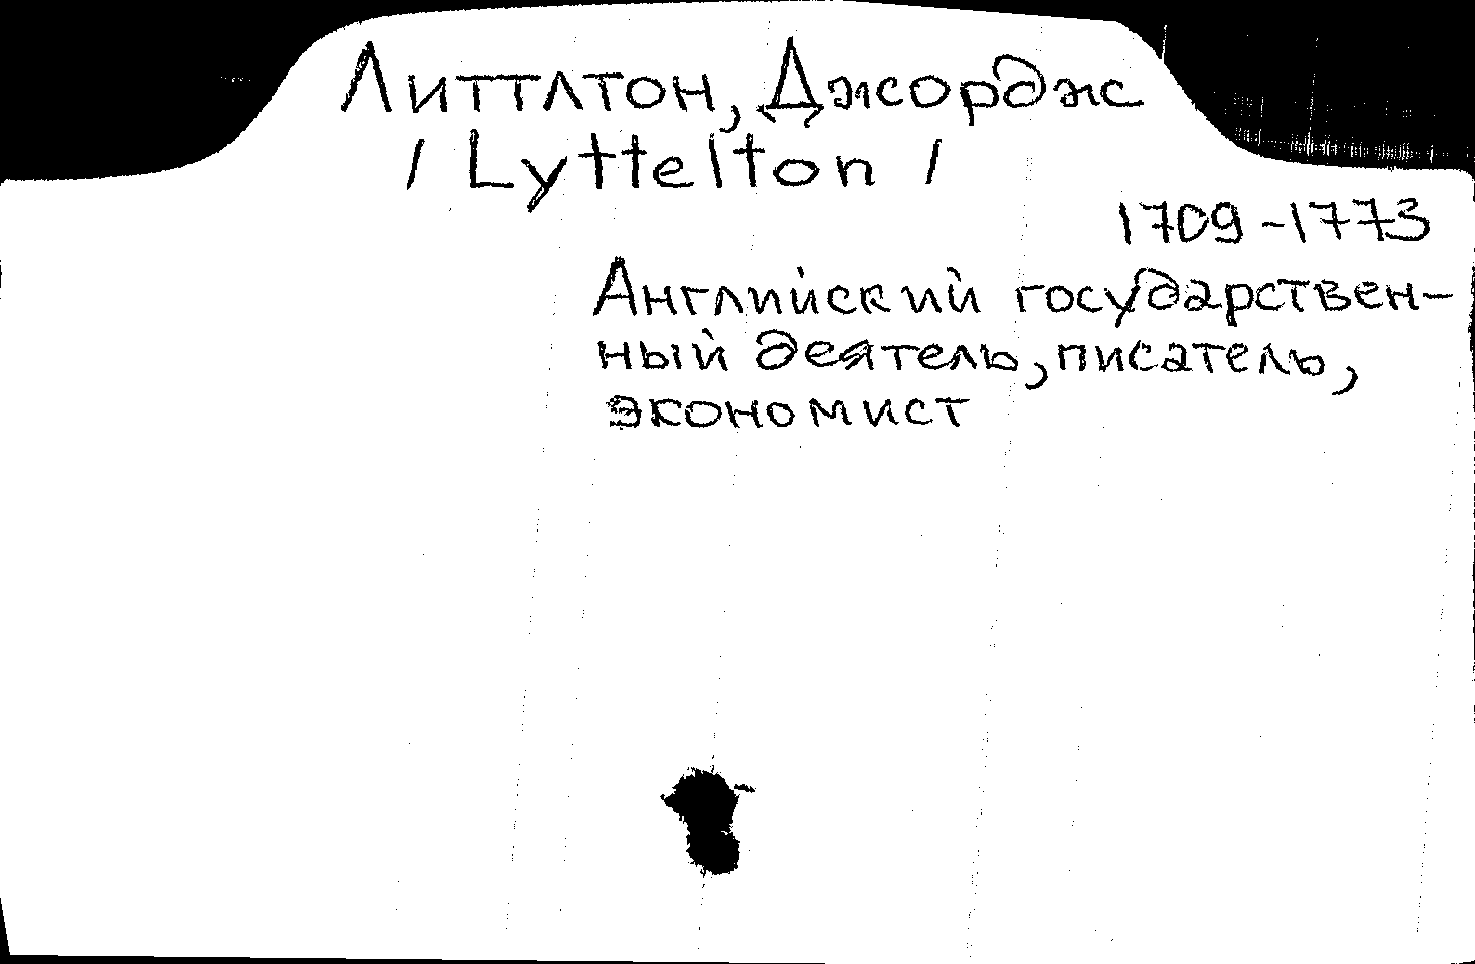 Литтлтон, Джордж
/ Lyttelton /
1709-1773
Английский государствен-
ный деятель, писатель,
экономист